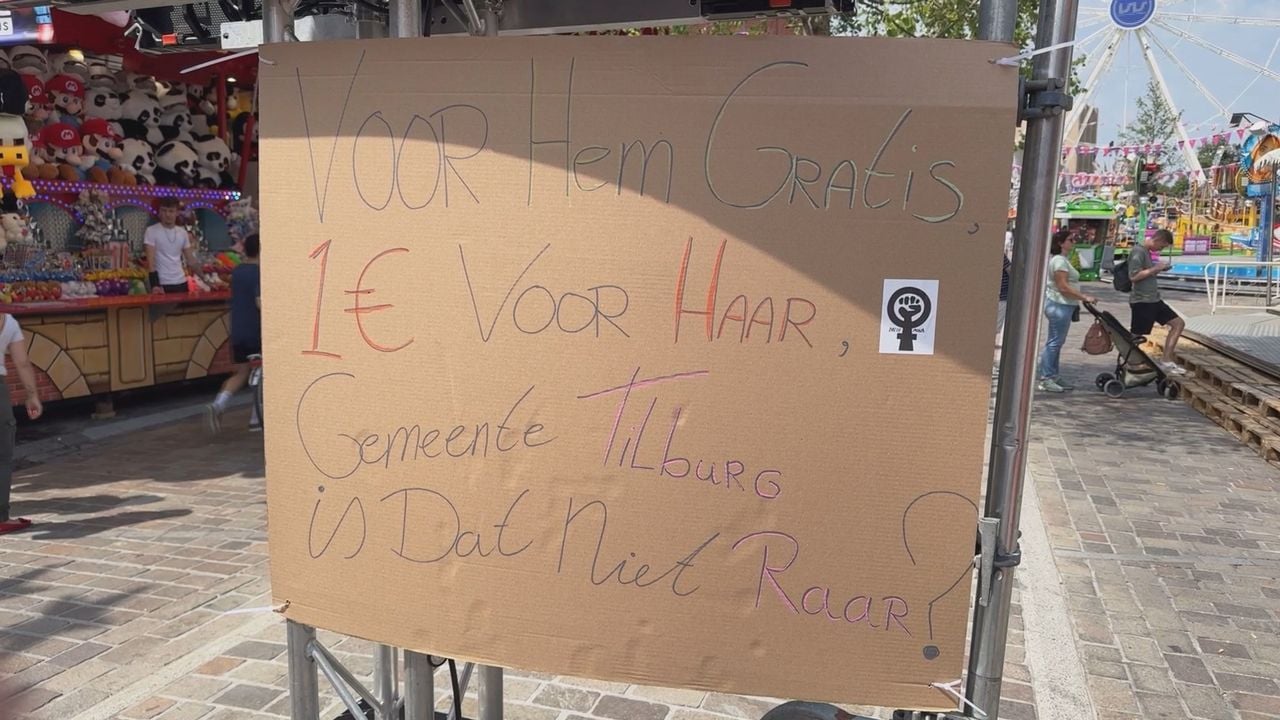 VOOR Hem GRAtis,
1€ VOOR HAAR,
Gemeente TiLbuRG
is Dat Niet Raar?